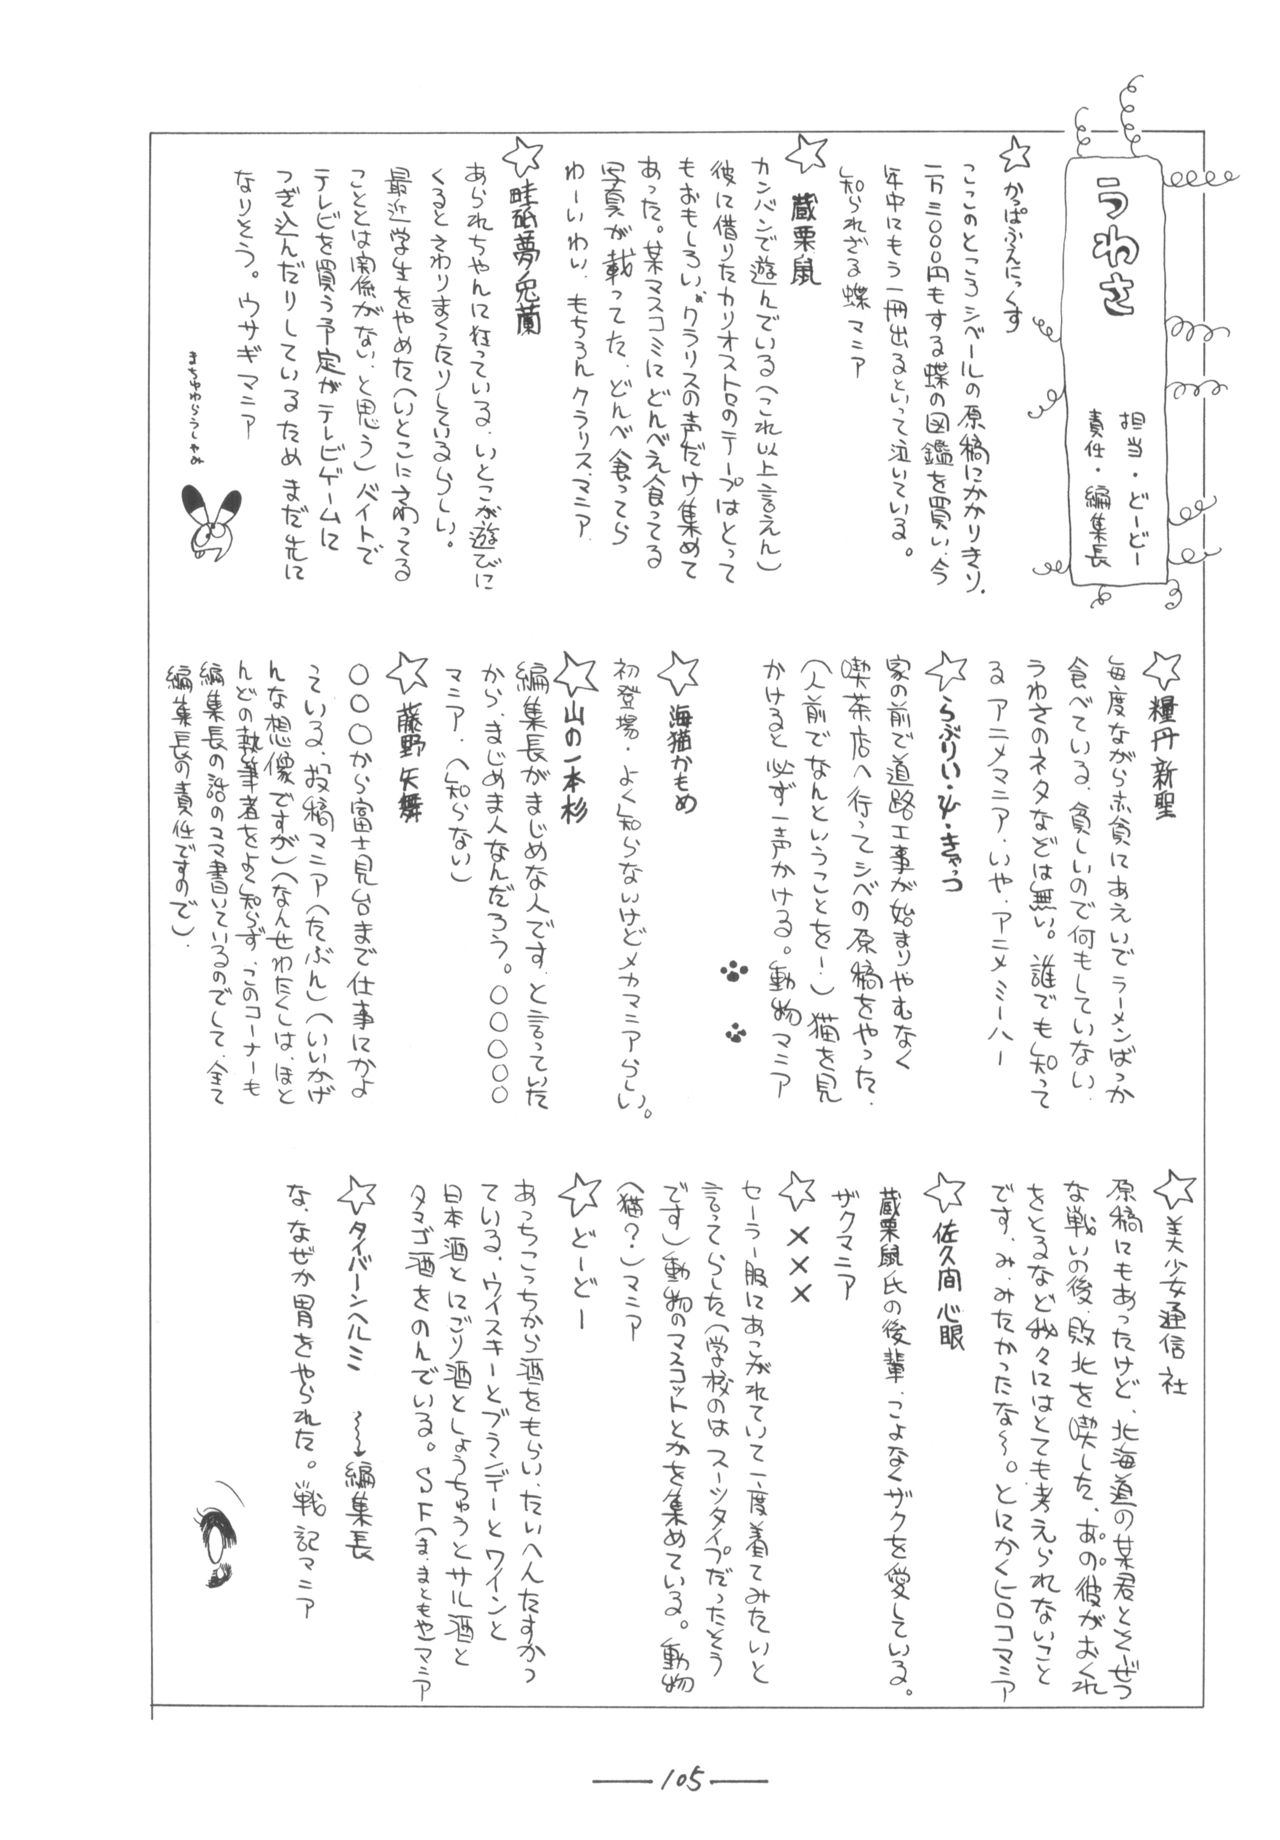 うわさ
担当・どーどー
責任・編集長
☆かっぱふぇんにっくす
ここのところシベールの原稿にかかりきり、
二万三〇〇〇円もする蝶の図鑑を買い、今
年中にもう一冊出るといって泣いている。
知られざる蝶マニア
☆蔵栗鼠
カンバンで遊んでいる(これ以上言えん)
彼に借りたカリオストロのテープはとって
もおもしろい〝クラリスの声だけ集めて
あった。某マスコミにどんべえ食ってる
写真が載ってた、どんべ食ってら
わーいわい、もちろんクラリス・マニア、
☆畦砥夢兎蘭
あられちゃんに狂っている、いとこが遊びに
くるとさわりまくったりしているらしい。
最近学生をやめた(いとこにさわってる
こととは関係がない、と思う)バイトで
テレビを買う予定がテレビゲームに
つぎ込んだりしているためまだ先に
なりそう。ウサギマニア
まちゅわらうしゃみ
☆糧丹新聖
毎度ながら赤貧にあえいでラーメンばっか
食べている、貧しいので何もしていない、
うわさのネタなどは無い。誰でも知って
るアニメマニア、いや、アニメミーハー
☆らぶりい・ψ・きゃっつ
家の前で道路工事が始まりやむなく
喫茶店へ行ってシベの原稿をやった、
(人前でなんということをー!)猫を見
かけると必ず一声かける。動物マニア
☆海猫かもめ
初登場・よく知らないけどメカマニアらしい。
☆山の一本杉
編集長がまじめな人です、と言っていた
から、まじめま人なんだろう。〇〇〇〇〇
マニア、(知らない)
☆藤野矢舞
〇〇〇から富士見台まで仕事にかよ
っている、投稿マニア(たぶん)(いいかげ
んな想像ですが)(なんせわたくしは、ほと
んどの執筆者をよく知らず、このコーナーも
編集長の話のママ書いているのでして、全て
編集長の責任ですので)、
☆美少女通信社
原稿にもあったけど、北海道の某君とくぜつ
な戦いの後、敗北を喫した、あの彼がおくれ
をとるなど我々にはとても考えられないこと
です、み、みたかったな〜。とにかくヒロコマニア
☆佐久間心眼
蔵栗鼠氏の後輩、こよなくザクを愛している。
ザクマニア
☆×××
セーラー服にあこがれていて一度着てみたいと
言ってらした(学校のはスーツタイプだったそう
です)動物のマスコットとかを集めている。動物
(猫?)マニア
☆どーどー
あっちこっちから酒をもらい、たいへんたすかっ
ている、ウイスキーとブランデーとワインと
日本酒とにごり酒としょうちゅうとサル酒と
タマゴ酒をのんでいる。SF(ま、まともや)マニア
☆タイバーンヘルミ 〜〜→編集長
な、なぜか胃をやられた。戦記マニア
105